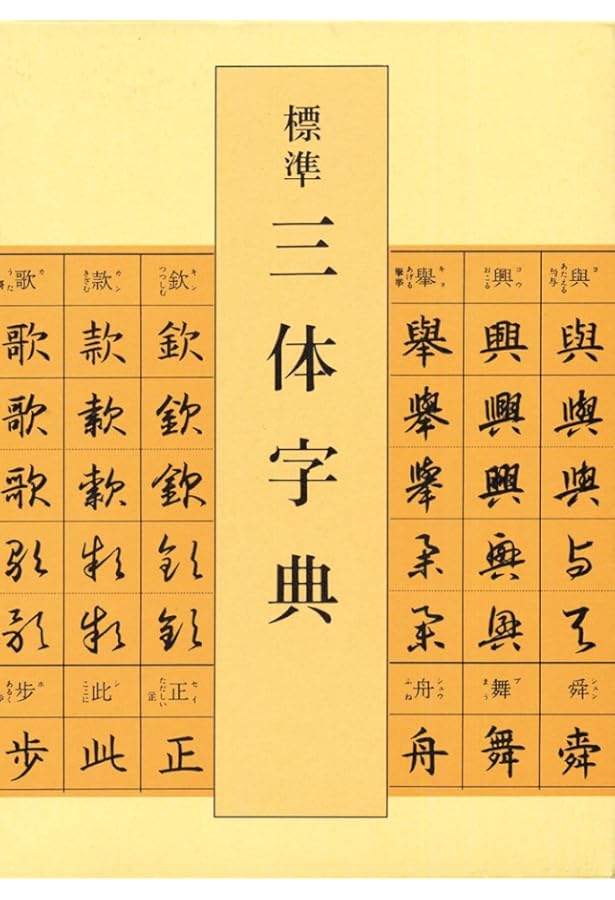 標準
三体字典
與 ヨ あたえる
與
與
與
与
与
舜 シュン
舜
興 コウ おこる
興
興
興
興
興
舞 ブ まう
舞
舉 キョ あげる
舉
舉
舉
舉
舉
舟 シュウ ふね
舟
欽 キン つつしむ
欽
欽
欽
欽
欽
正 セイ ただしい
正
款 カン きざむ
款
款
款
款
款
此 シ ここに
此
歌 カ うた
歌
歌
歌
歌
歌
步 ホ あるく
歩